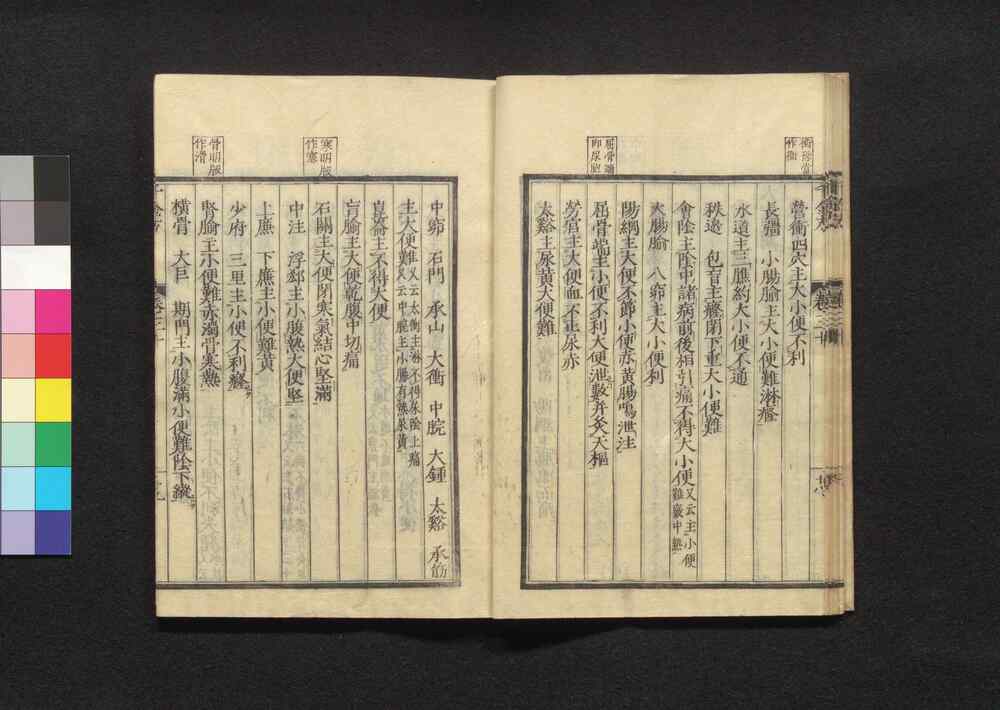 營衝四穴主大小便不利
長彊 小腸腧主大小便難淋癃
水道主三膲約大小便不通
秩邊 包肓主癃閉下重大小便難
會陰主陰中諸病前後相引痛不得大小便
又云主小便
難竅中熱
大腸腧 八窌主大小便利
陽綱主大便不節小便赤黃腸鳴泄注
屈骨端主小便不利大便泄數并灸天樞
勞宮主大便血不止尿赤
太谿主尿黃大便難
作衝
屈骨
即尿胞
中窌 石門 承山 大衝 中脘 大鍾 太谿 承筋
主大便難
又云太衝主淋不得尿陰上痛
又云中脘主小腸有熱尿黃
崑崙主不得大便
肓腧主大便乾腹中切痛
石關主大便閉寒氣結心堅滿
中注 浮郄主小腹熱大便堅
上廉 下廉主小便難黃
少府 三里主小便不利癃
腎腧主小便難赤濁骨寒熱
橫骨 大巨 期門主小腹滿小便難陰下縱
寒明版
作塞
骨明版
作滑